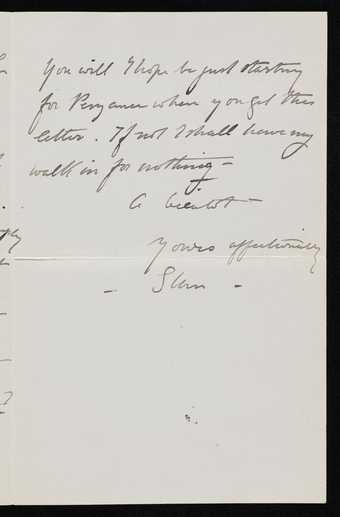 You will I hope be just starting
for Penzance when you get this
letter. If not I shall have my
walk in for nothing –
A bientôt –
Yours affectionately
– –